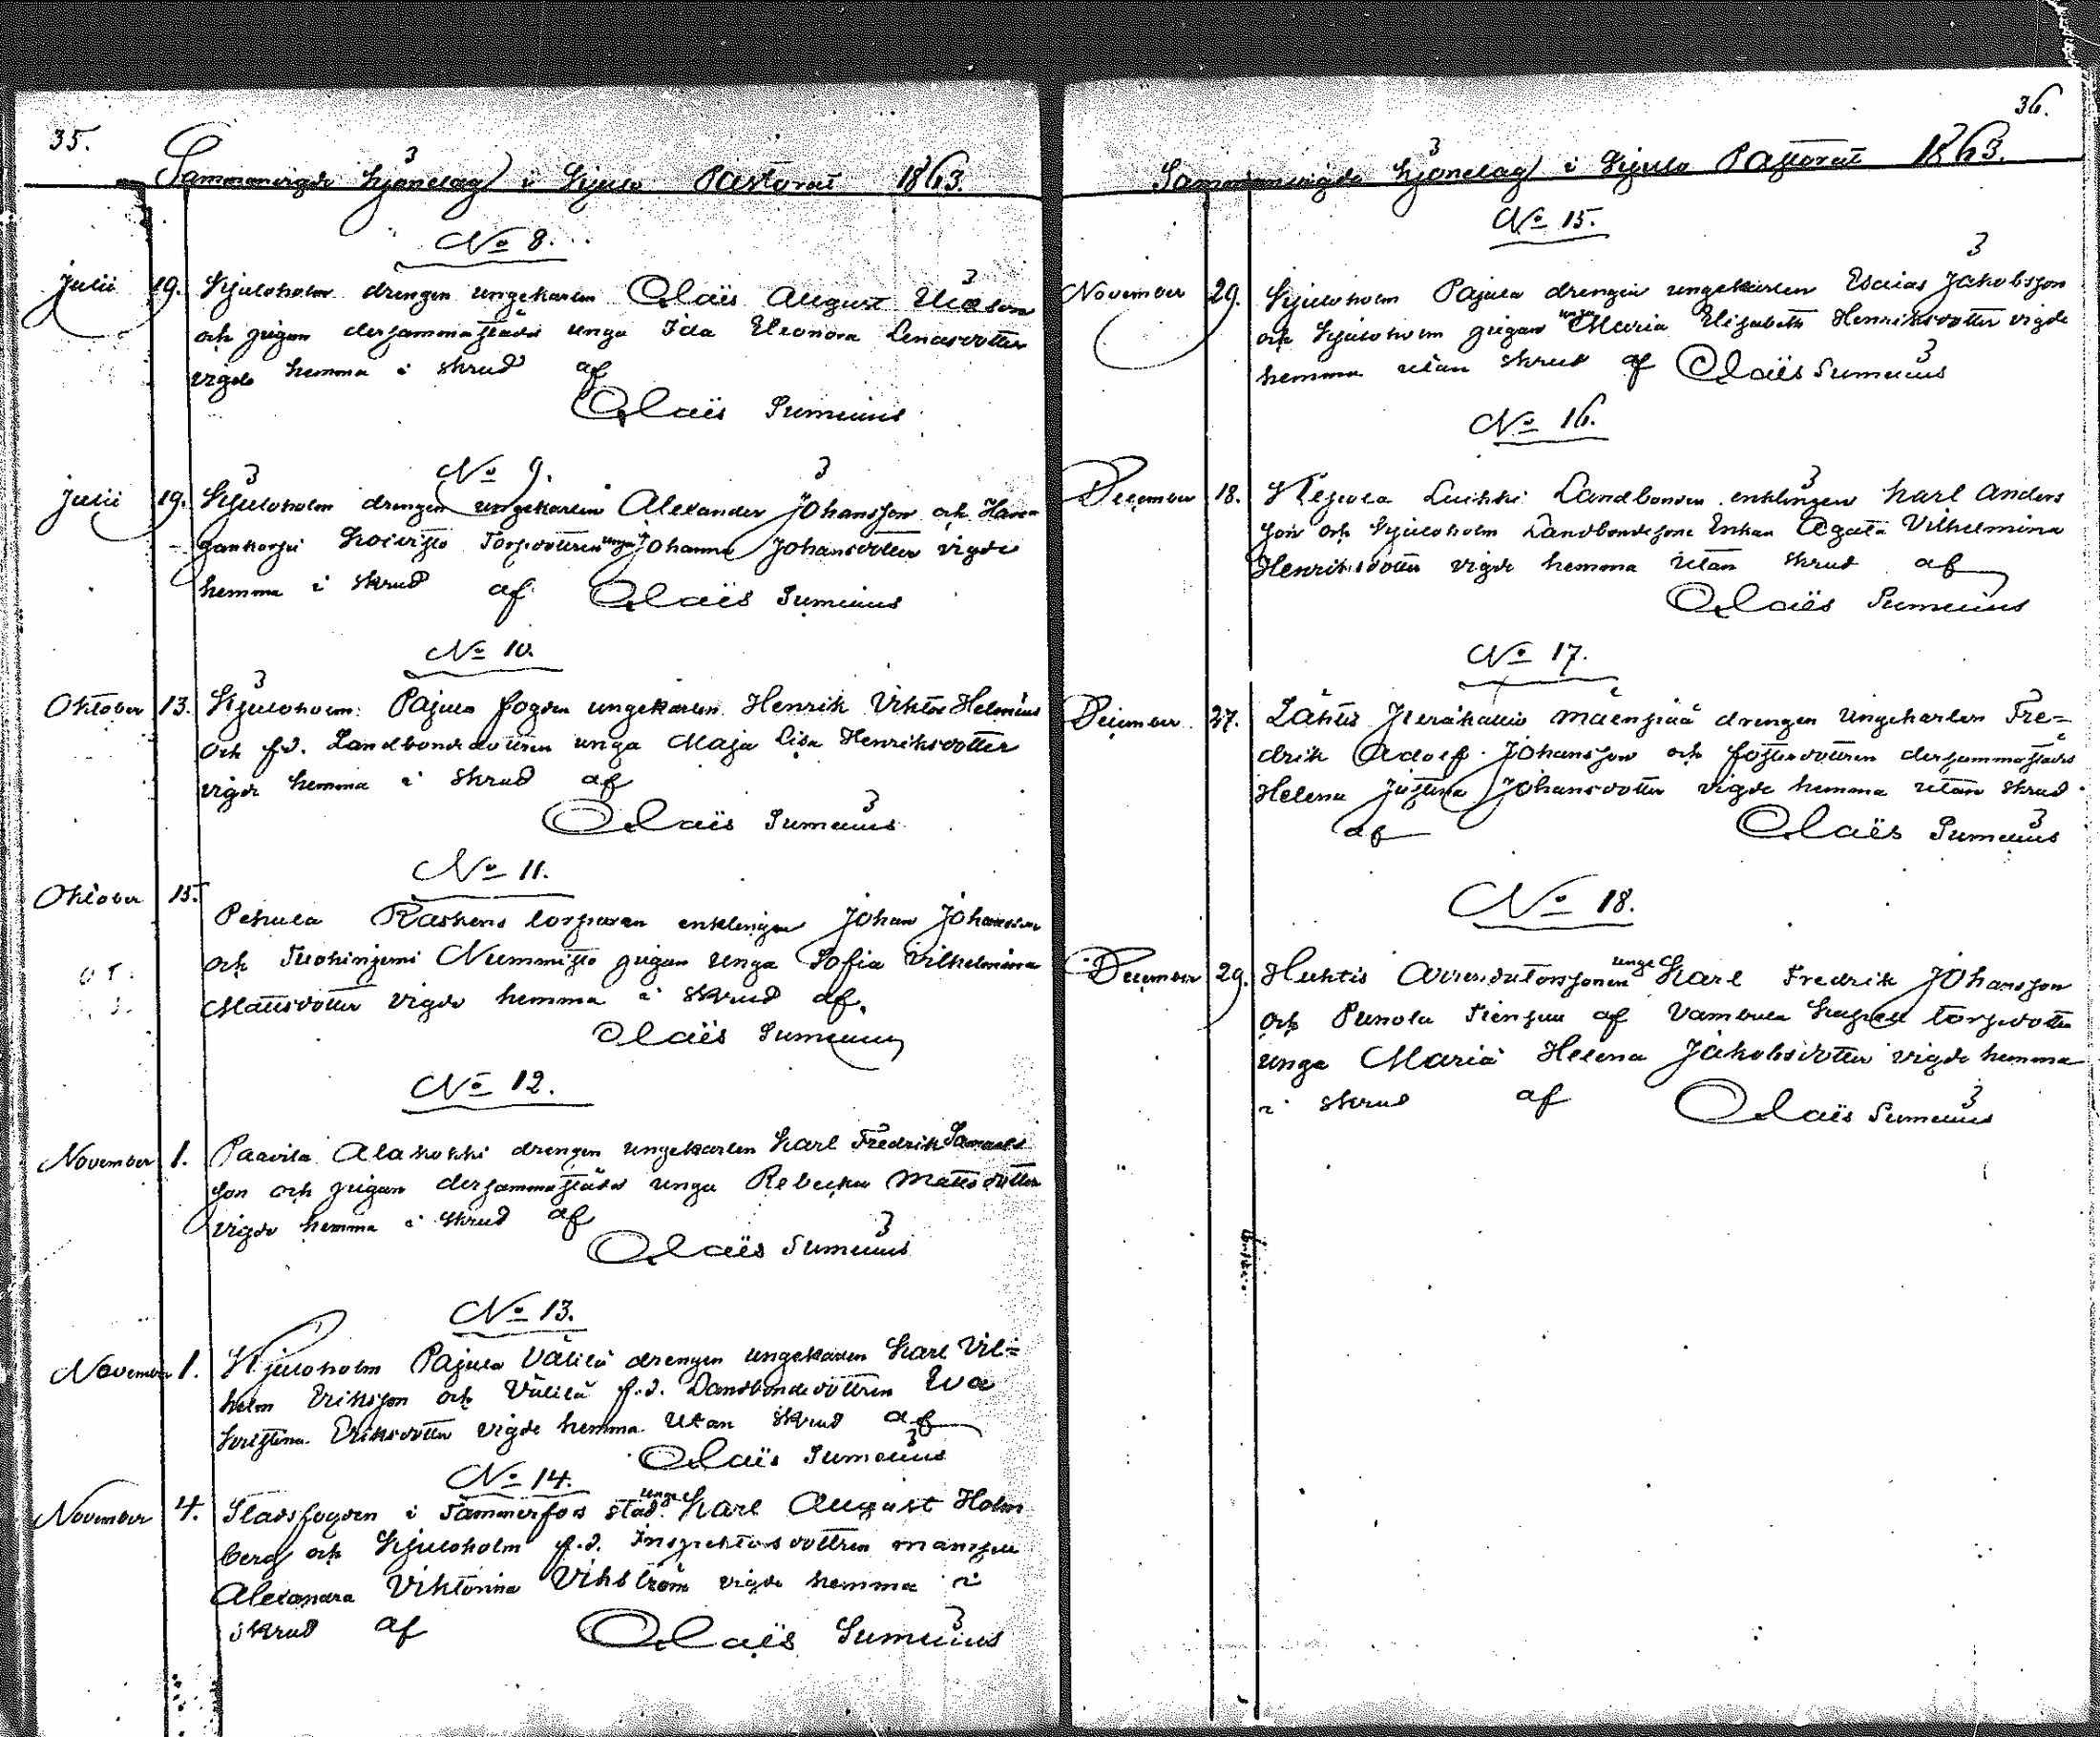 35.
Sammanvigde hjonelag i Kjulo Pastorat 1863.
No 8.
Julii 19. Kjuloholm drengen ungekarlen Claës August Eliasson
och pigan dersammastädes unga Ida Eleonora Lenasdotter
vigde hemma i skrud af
Claës Sumelius
No 9.
Julii 19. Kjuloholm drengen ungekarlen Alexander Johansson och Har-
jankorpi Koivisto Torpdottren unga Johanna Johansdotter vigde
hemma i skrud af Claës Sumelius
No 10.
Oktober 13. Kjuloholm Pajula fogden ungekarlen Henrik Viktor Helenius
och f.d. Landbondedottren unga Maja Lisa Henriksdotter
vigde hemma i skrud af
Claës Sumelius
No 11.
Oktober 15. Pehula Raskens torparen enklingen Johan Johansson
och Tuohiniemi Nummisto pigan unga Sofia Vilhelmina
Mattsdotter vigde hemma i skrud af.
Claës Sumelius
No 12.
November 1. Paavila Alakokki drengen ungekarlen Karl Fredrik Samuels
son och pigan dersammastädes unga Rebecka Mattsdotter
vigde hemma i skrud af
Claës Sumelius
No 13.
November 1. Kjuloholm Pajula Välilä drengen ungekarlen Karl Vil=
helm Eriksson och Välilä f.d. Landbondedottren Eva
Kristina Eriksdotter vigde hemma utan skrud af
Claës Sumelius
No 14.
November 4. Stadsfogden i Tammerfors stad unge Karl August Holm
berg och Kjuloholm f.d. Inspektorsdottren mamsell
Alexandra Viktorina Vikström vigde hemma i
skrud af Claës Sumelius
36.
Sammanvigde hjonelag i Kjulo Pastorat 1863.
No 15.
November 29. Kjuloholm Pajula drengen ungekarlen Esaias Jakobsson
och Kjuloholm pigan unga Maria Elisabeth Henriksdotter vigde
hemma utan skrud af Claës Sumelius
No 16.
December 18. Luikki Landbonden enklingen Karl Anders
son och Kjuloholm Landbondesone Enkan Agata Vilhelmina
Henriksdotter vigde hemma utan skrud af
Claës Sumelius
No 17.
December 27. Lähtis Iseräkallio mäenpiää drengen ungekarlen Fre=
drik Adolf Johansson och fosterdottren dersammastädes
Helena Justina Johansdotter vigde hemma utan skrud
af Claës Sumelius
No 18.
December 29. Huhtis Arrendatorssonen unge Karl Fredrik Johansson
och Punola af Vambula Kapell torpdotter
unga Maria Helena Jakobsdotter vigde hemma
i skrud af Claës Sumelius